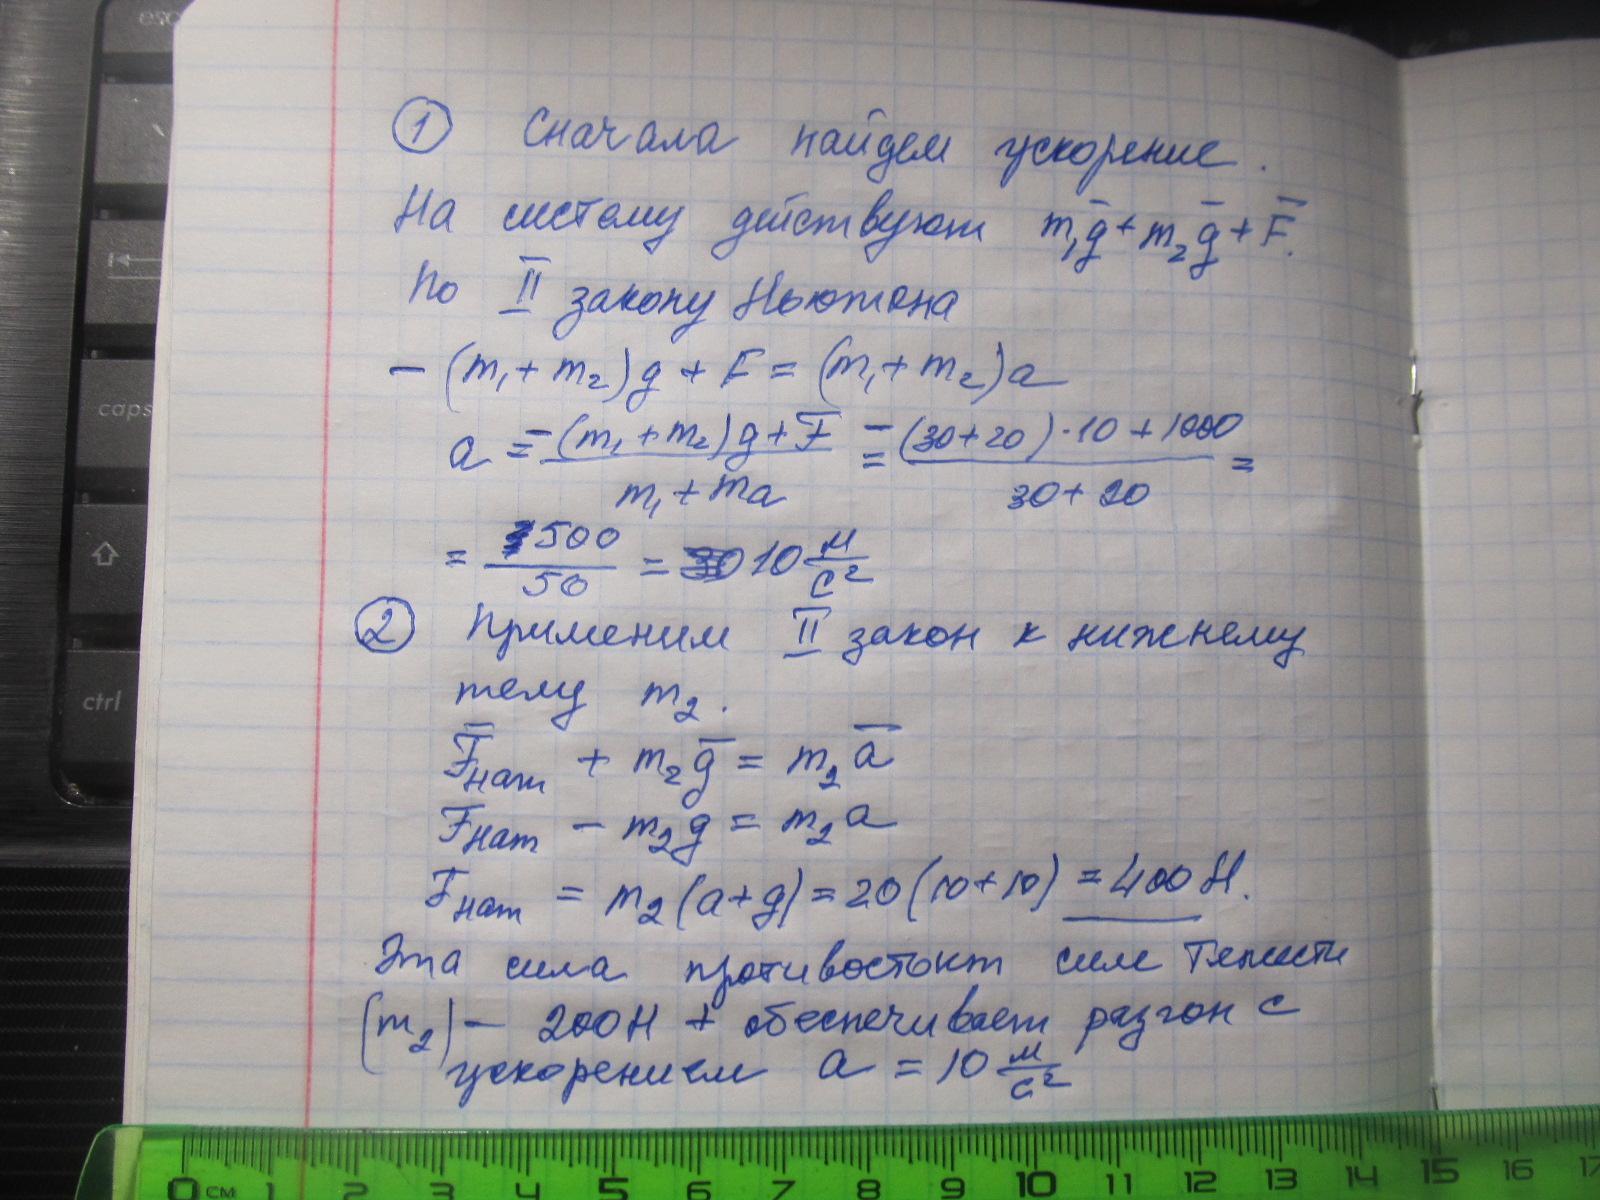 esc
caps
ctrl
① Сначала найдем ускорение.
На систему действуют m₁g̅ + m₂g̅ + F̅.
По II закону Ньютона
- (m₁ + m₂)g + F = (m₁ + m₂)a
a = -(m₁ + m₂)g + F / m₁ + ma = -(30+20)·10 + 1000 / 30 + 20 =
= 500 / 50 = 10 м/с²
② Применим II закон к нижнему
телу m₂.
F̅нат + m₂g̅ = m₂a̅
Fнат - m₂g = m₂a
Fнат = m₂(a+g) = 20(10+10) = 400 Н.
Эта сила противостоит силе тяжести
(m₂) - 200Н + обеспечивает разгон с
ускорением a = 10 м/с²
0 см 1 2 3 4 5 6 7 8 9 10 11 12 13 14 15 16 17